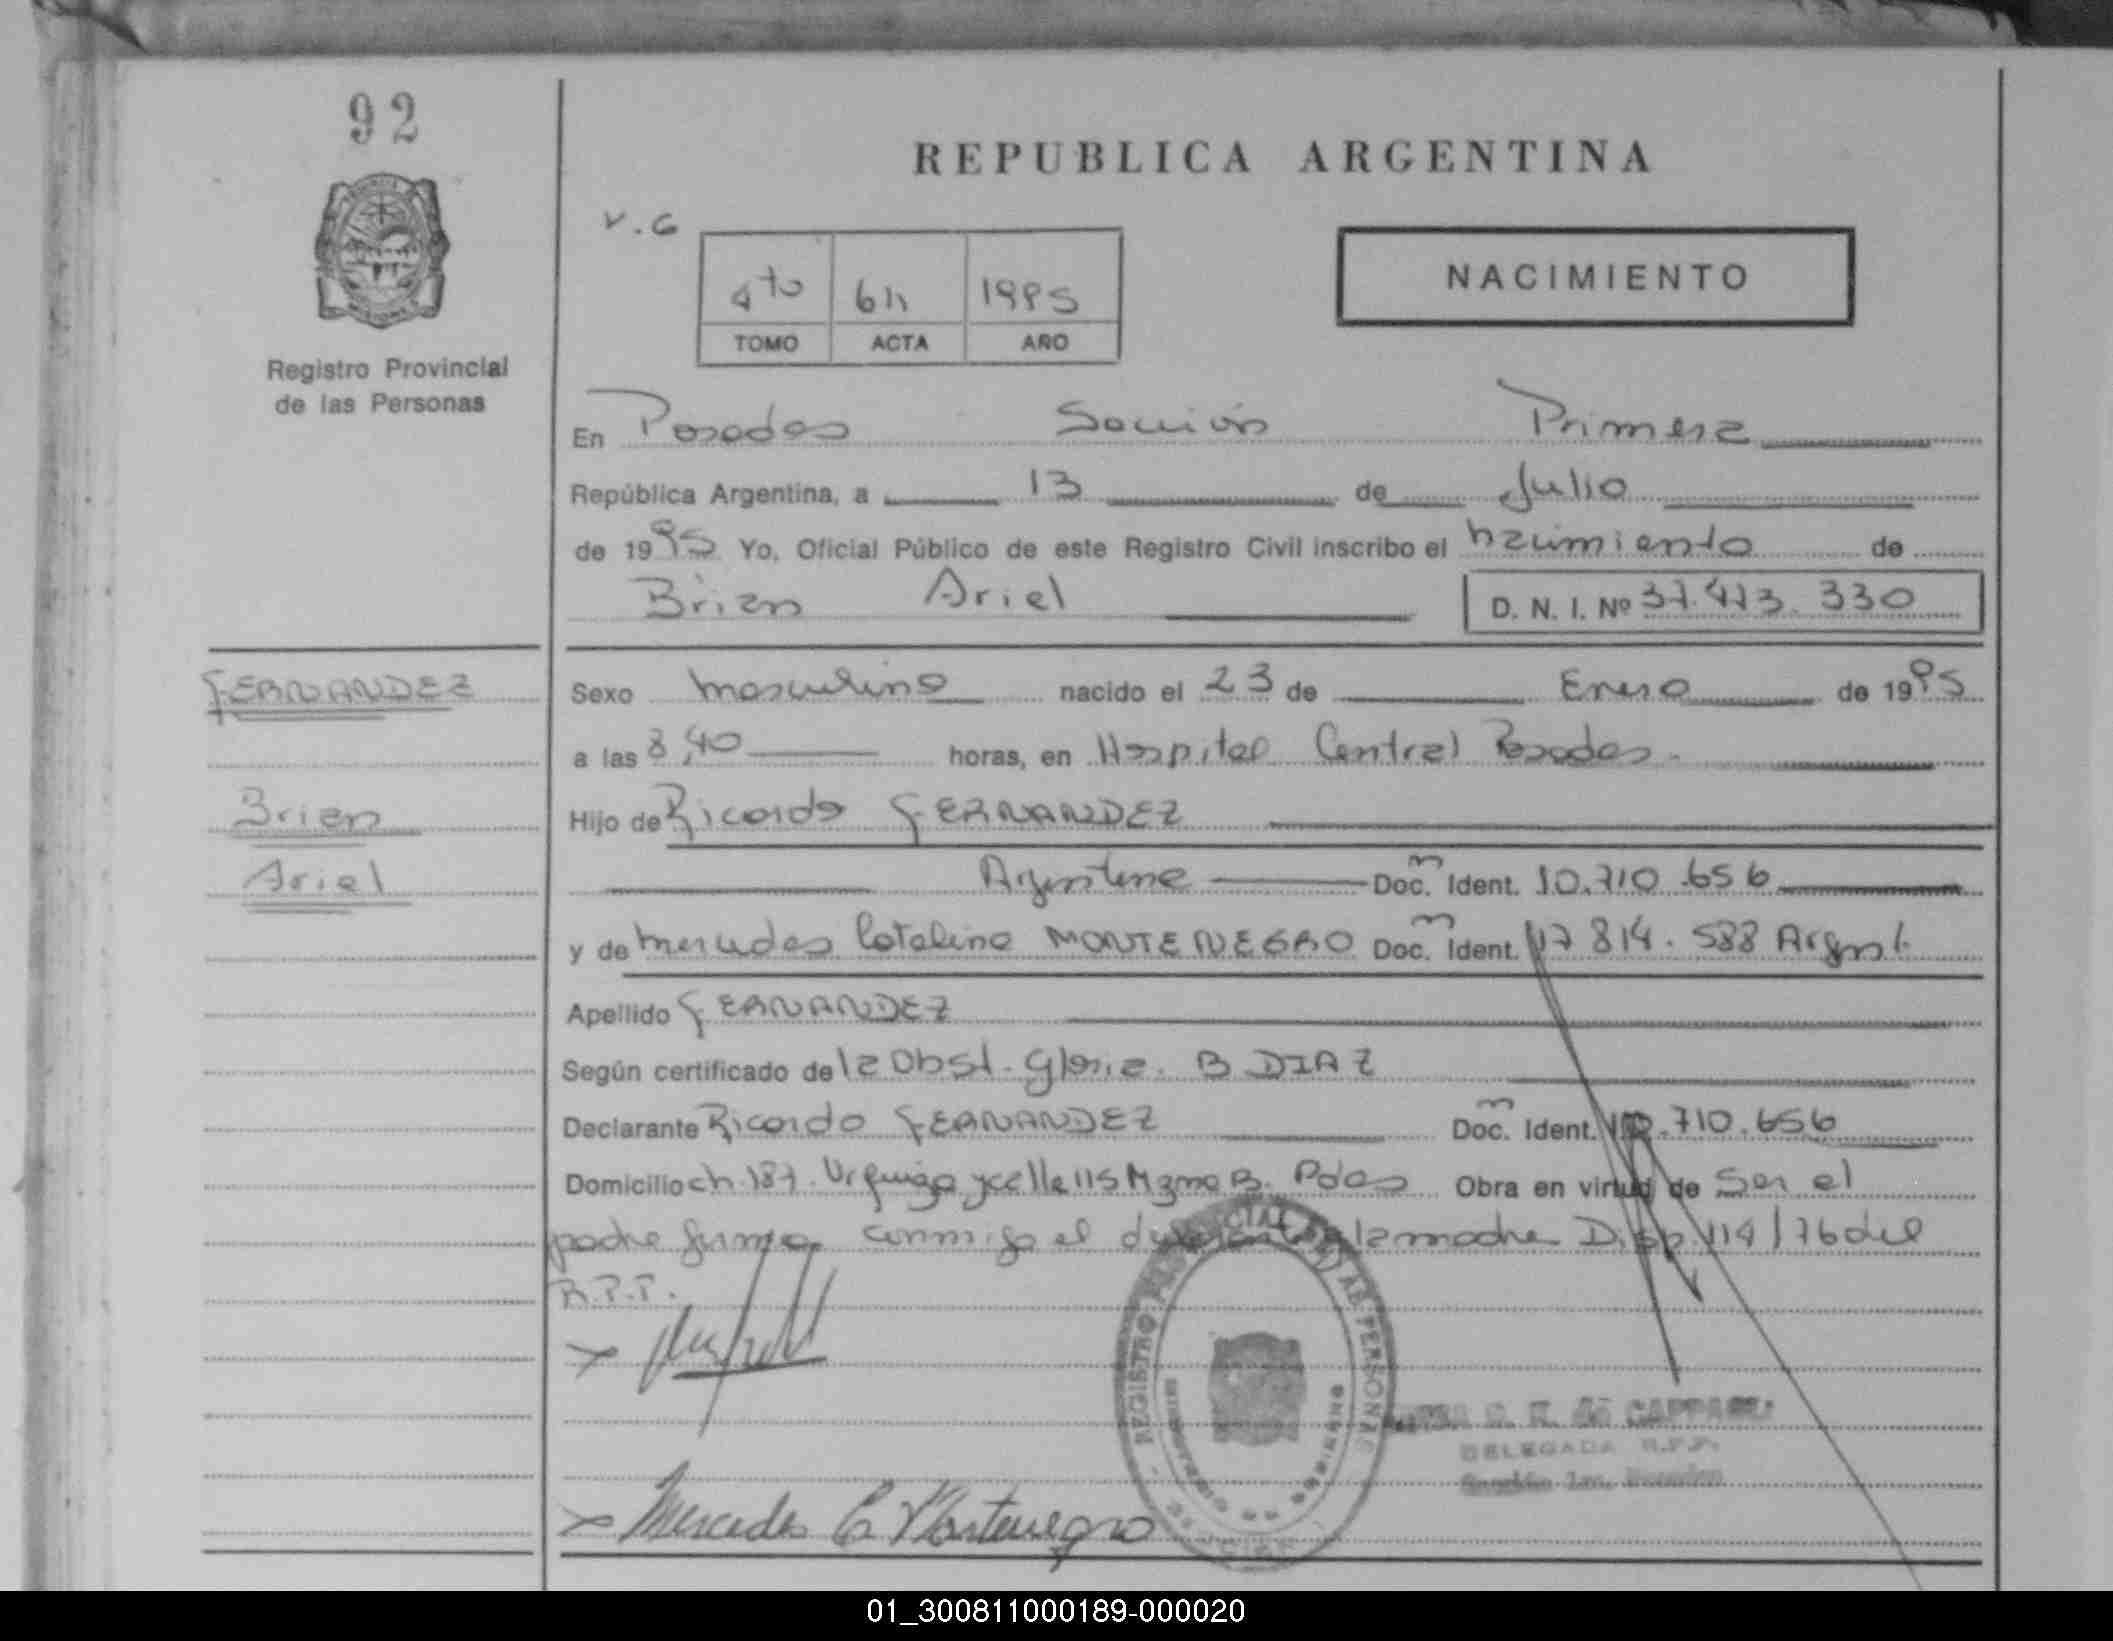 92
REPUBLICA ARGENTINA
V.G
4to 611 1995
TOMO ACTA AÑO
NACIMIENTO
Registro Provincial
de las Personas
En Posadas Sección Primera
República Argentina, a 13 de Julio
de 1995 Yo, Oficial Público de este Registro Civil inscribo el nacimiento de
Brian Ariel D. N. I. Nº 37.473.330
FERNANDEZ
Brian
Ariel
Sexo masculino nacido el 23 de Enero de 1995
a las 8,40 horas, en Hospital Central Posadas.
Hijo de Ricardo FERNANDEZ
Argentina Doc. Ident. 10.710.656
y de Mercedes Catalina MONTENEGRO Doc. Ident. 17 814.588 Argent.
Apellido FERNANDEZ
Según certificado de la Obst. Gloria B DIAZ
Declarante Ricardo FERNANDEZ Doc. Ident. 10.710.656
Domicilio ch.187. Urquiza y calle 115 Mzna B. Pdas Obra en virtud de Ser el
padre firma conmigo el declarante y la madre Disp. 114/76 del
R.P.P.
Mercedes C. Montenegro
REGISTRO PROVINCIAL DE LAS PERSONAS
DELEGADA R.P.P.
01_300811000189-000020